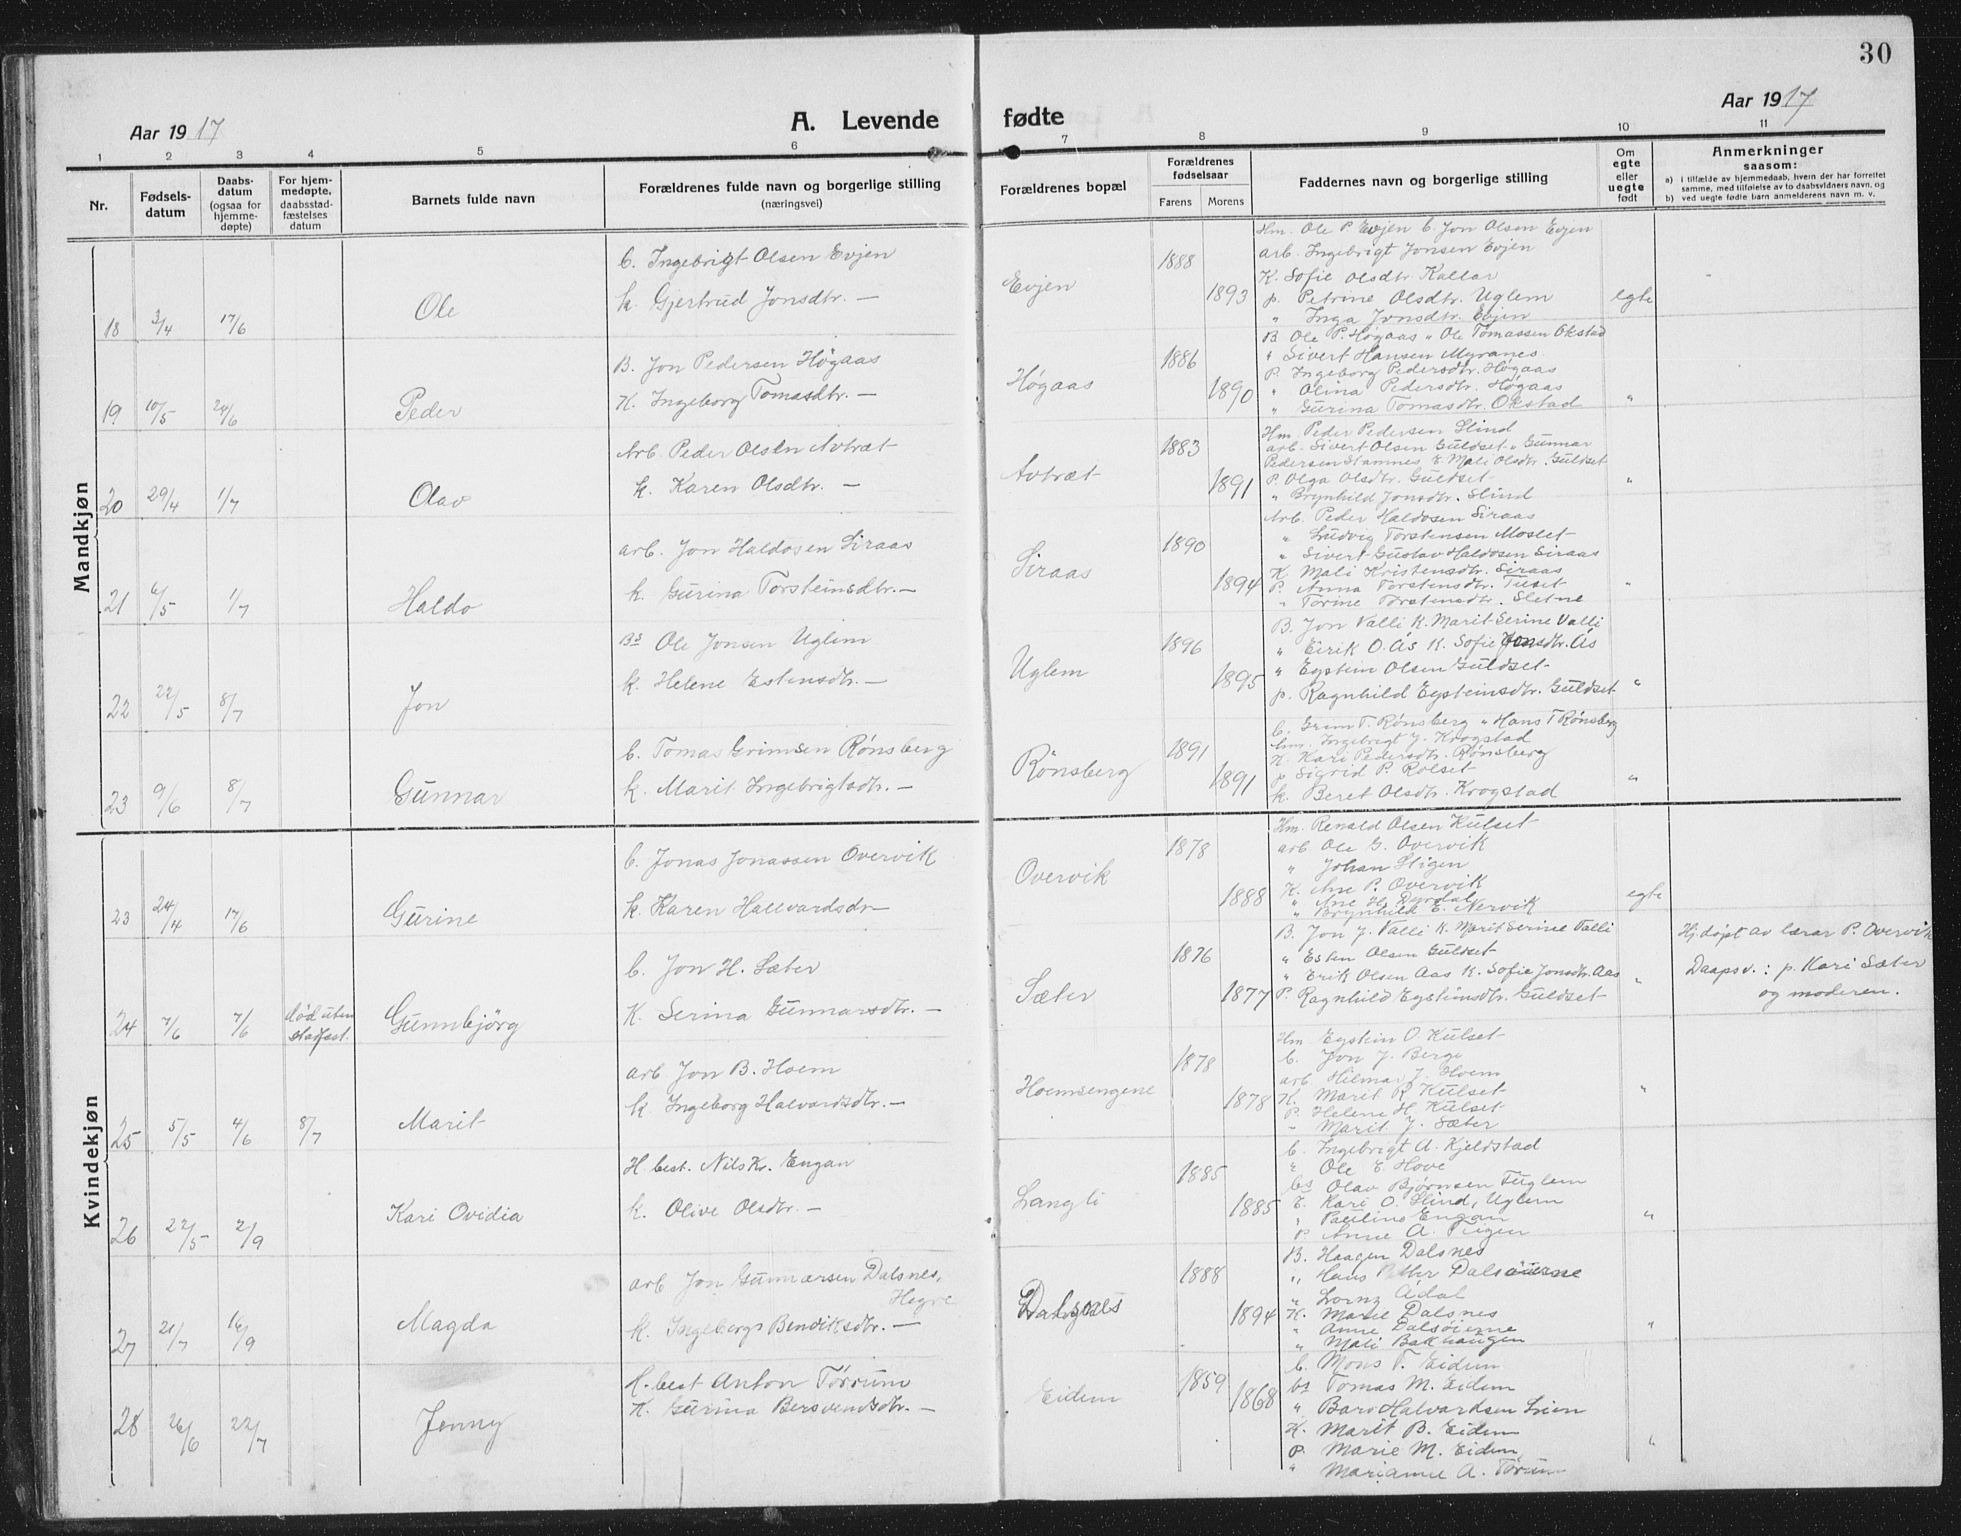 30
Aar 1917
A. Levende
fødte
Aar 1917
1 2 3 4 5 6 7 8 9 10 11
Nr.
Fødsels-
datum
Daabs-
datum
(ogsaa for
hjemme-
døpte)
For hjem-
medøpte,
daabsstad-
fæstelses
datum
Barnets fulde navn
Forældrenes fulde navn og borgerlige stilling
(næringsvei)
Forældrenes bopæl
Forældrenes
fødselsaar
Farens Morens
Faddernes navn og borgerlige stilling
Om
egte
eller
uegte
født
Anmerkninger
saasom:
a) i tilfælde av hjemmedaab, hvem der har forrettet
samme, med tilføielse av to daabsvidners navn, og
b) ved uegte fødte barn anmelderens navn m. v.
Mandkjøn
18 3/4 17/6 Ole
G. Ingebrigt Olsen Evjen
k. Gjertrud Jonsdtr. —
Evjen 1888 1893
Hm. Ole P. Evjen G. Jon Olsen Evjen
arb. Ingebrigt Jonsen Evjen
K. Sofie Olsdtr. Kallar
p. Petrine Olsdtr. Uglem
" Inga Jonsdtr. Evjen
egte
19 10/5 24/6 Peder
B. Jon Pedersen Høgaas
K. Ingeborg Tomasdtr. —
Høgaas 1886 1890
B Ole P. Høgaas " Ole Tomassen Okstad
" Sivert Hansen Myranes
P. Ingeborg Pedersdtr. Høgaas
" Olina Pedersdtr. Høgaas
" Gurina Tomasdtr. Okstad
"
20 29/4 1/7 Olav
Arb. Peder Olsen Avtræt
k. Karen Olsdtr. —
Avtræt 1883 1891
Hm. Peder Pedersen Slind
arb. Sivert Olsen Guldset " Gunnar
Pedersen Stamnes E. Mali Olsdtr. Guldset
P. Olga Olsdtr. Guldset
" Brynhild Jonsdtr. Slind
"
21 6/5 1/7 Haldo
arb. Jon Haldosen Siraas
k. Gurina Torsteinsdtr. —
Siraas 1890 1894
Arb. Peder Haldosen Siraas
" Ludvig Torstensen Moslet
" Sivert Gustav Haldosen Siraas
K. Mali Kristensdtr. Siraas
P. Anna Torstensdtr. Tuset
" Torine Torstensdtr. Sletne
"
22 22/5 8/7 Jon
Bs Ole Jonsen Uglem
k. Helene Estensdtr. —
Uglem 1896 1895
B. Jon Valli K. Marit Serine Valli
" Eirik O. Ås K. Sofie Jonsdtr. Ås
" Eystein Olsen Guldset
p. Ragnhild Eysteinsdtr. Guldset
"
23 9/6 8/7 Gunnar
G. Tomas Grimsen Rønsberg
k. Marit Ingebrigtsdtr. —
Rønsberg 1891 1891
G. Grim T. Rønsberg " Hans T Rønsberg
hm. Ingebrigt J. Krogstad
K. Kari Pedersdtr. Rønsberg
p Sigrid P. Rolset
k. Beret Olsdtr. Krogstad
"
Kvindekjøn
23 24/4 17/6 Gurine
G. Jonas Jonassen Overvik
k. Karen Hallvardsdr —
Overvik 1878 1888
Hm. Renald Olsen Kulset
arb Ole G. Overvik
" Johan Stigen
K. Ane P. Overvik
" Ane H. Dyrdal
" Brynhild E. Nervik
egte
24 7/6 7/6 død uten
stadfæst. Gunnbjørg
G. Jon H. Sæter
K. Serina Gunnarsdtr. —
Sæter 1876 1877
B. Jon J. Valli K. Marit Serine Valli
" Esten Olsen Guldset
" Erik Olsen Aas K. Sofie Jonsdtr. Aas
P. Ragnhild Eysteinsdtr. Guldset
"
Hj. døpt av lærar P. Overvik
Daapsv.: p. Kari Sæter
og moderen.
25 5/5 4/6 8/7 Marit
arb. Jon B. Hoem
k. Ingeborg Halvardsdtr. —
Hoemsengene 1878 1878
Hm Eystein O. Kulset
G. Jon J. Berge
arb. Hilmar J. Hoem
K. Marit R. Kulset
P. Helene H. Kulset
" Marit J. Sæter
"
26 22/5 2/9 Kari Ovidia
H. best. Nils Kr. Engan
k. Olive Olsdtr. —
Langli 1885 1885
G. Ingebrigt A. Kjeldstad
" Ole E. Hove
Gs Olav Bjørnsen Fuglem
E. Kari O. Slind, Uglem
" Pauline Engan
P. Anne A. Tiegen
"
27 21/7 16/9 Magda
arb Jon Gunnarsen Dalsnes,
Hegre
k. Ingeborg Bendiksdtr. —
Dalsnes 1888 1894
B. Haagen Dalsnes
" Hans Petter Dalsøierne
" Lornz Ådal
K. Marie Dalsnes
" Anne Dalsøierne
" Mali Bakhaugen
"
28 26/6 22/7 Jenny
H. best Anton Tørrum
K. Gurina Bersvendsdtr. —
Eidem 1859 1868
G. Mons T. Eidem
Gs Tomas M. Eidem
" Baro Halvardsen Lien
K. Marit B. Eidem
P. Marie M. Eidem
" Marianne A. Tørum
"